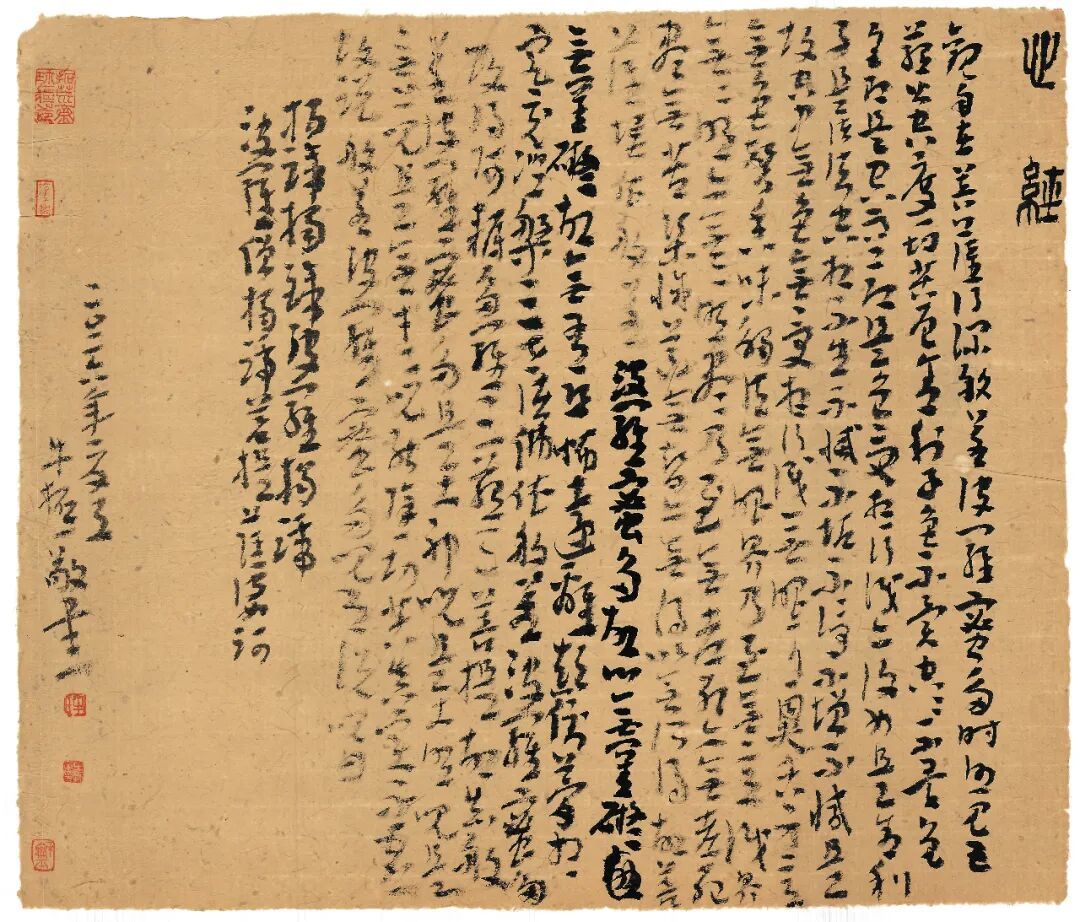 心經
觀自在菩薩行深般若波羅蜜多時照見五
蘊皆空度一切苦厄舍利子色不異空空不異色
色即是空空即是色受想行識亦復如是舍利
子是諸法空相不生不滅不垢不淨不增不減是
故空中無色無受想行識無眼耳鼻舌身意
無色聲香味觸法無眼界乃至無意識界
無無明亦無無明盡乃至無老死亦無老死
盡無苦集滅道無智亦無得以無所得故菩
提薩埵依般若波羅蜜多故心無罣礙
無罣礙故無有恐怖遠離顛倒夢想
究竟涅槃三世諸佛依般若波羅蜜多
故得阿耨多羅三藐三菩提故知般
若波羅蜜多是大神咒是大明咒是
無上咒是無等等咒能除一切苦真實不虛
故說般若波羅蜜多咒即說咒曰
揭諦揭諦波羅揭諦
波羅僧揭諦菩提薩婆訶
年
牛敬書